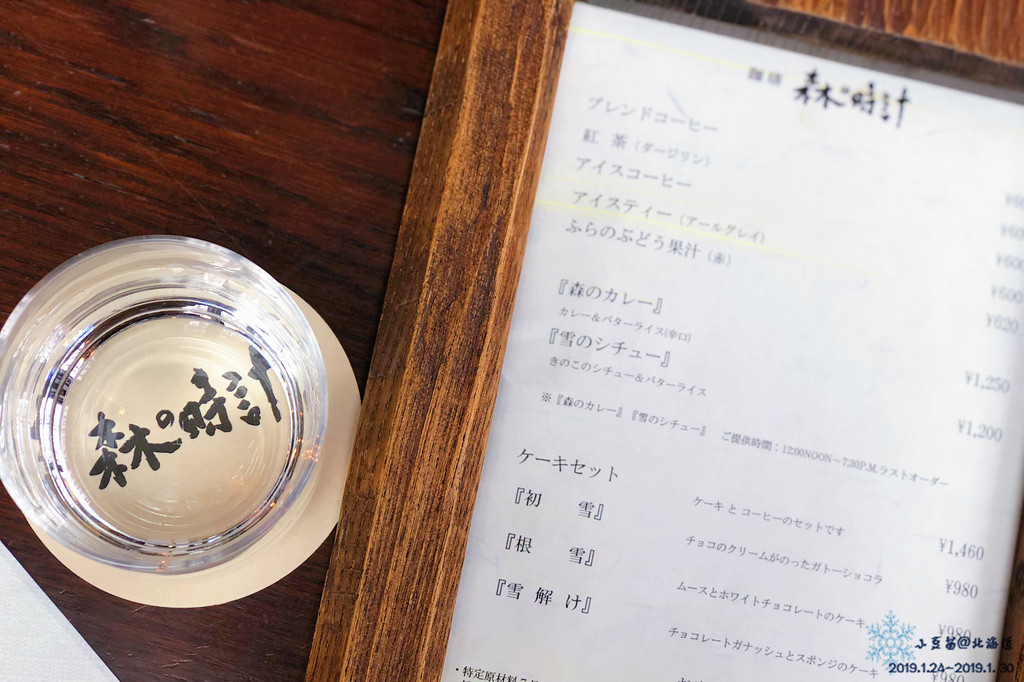 珈琲 森の時計
ブレンドコーヒー
紅茶（ダージリン）
アイスコーヒー
¥600
アイスティー（アールグレイ）
¥600
ふらのぶどう果汁（赤）
¥620
『森のカレー』
カレー＆バターライス(辛口)
¥1,250
『雪のシチュー』
きのこのシチュー＆バターライス
¥1,200
※『森のカレー』『雪のシチュー』 ご提供時間：12:00NOON～7:30P.M.ラストオーダー
ケーキセット
ケーキ と コーヒーのセットです
¥1,460
『初 雪』
チョコのクリームがのったガトーショコラ
¥980
『根 雪』
ムースとホワイトチョコレートのケーキ
¥980
『雪解け』
チョコレートガナッシュとスポンジのケーキ
¥980
・特定原材料7
森の時計
小豆苗@北海道
2019.1.24~2019.1.30